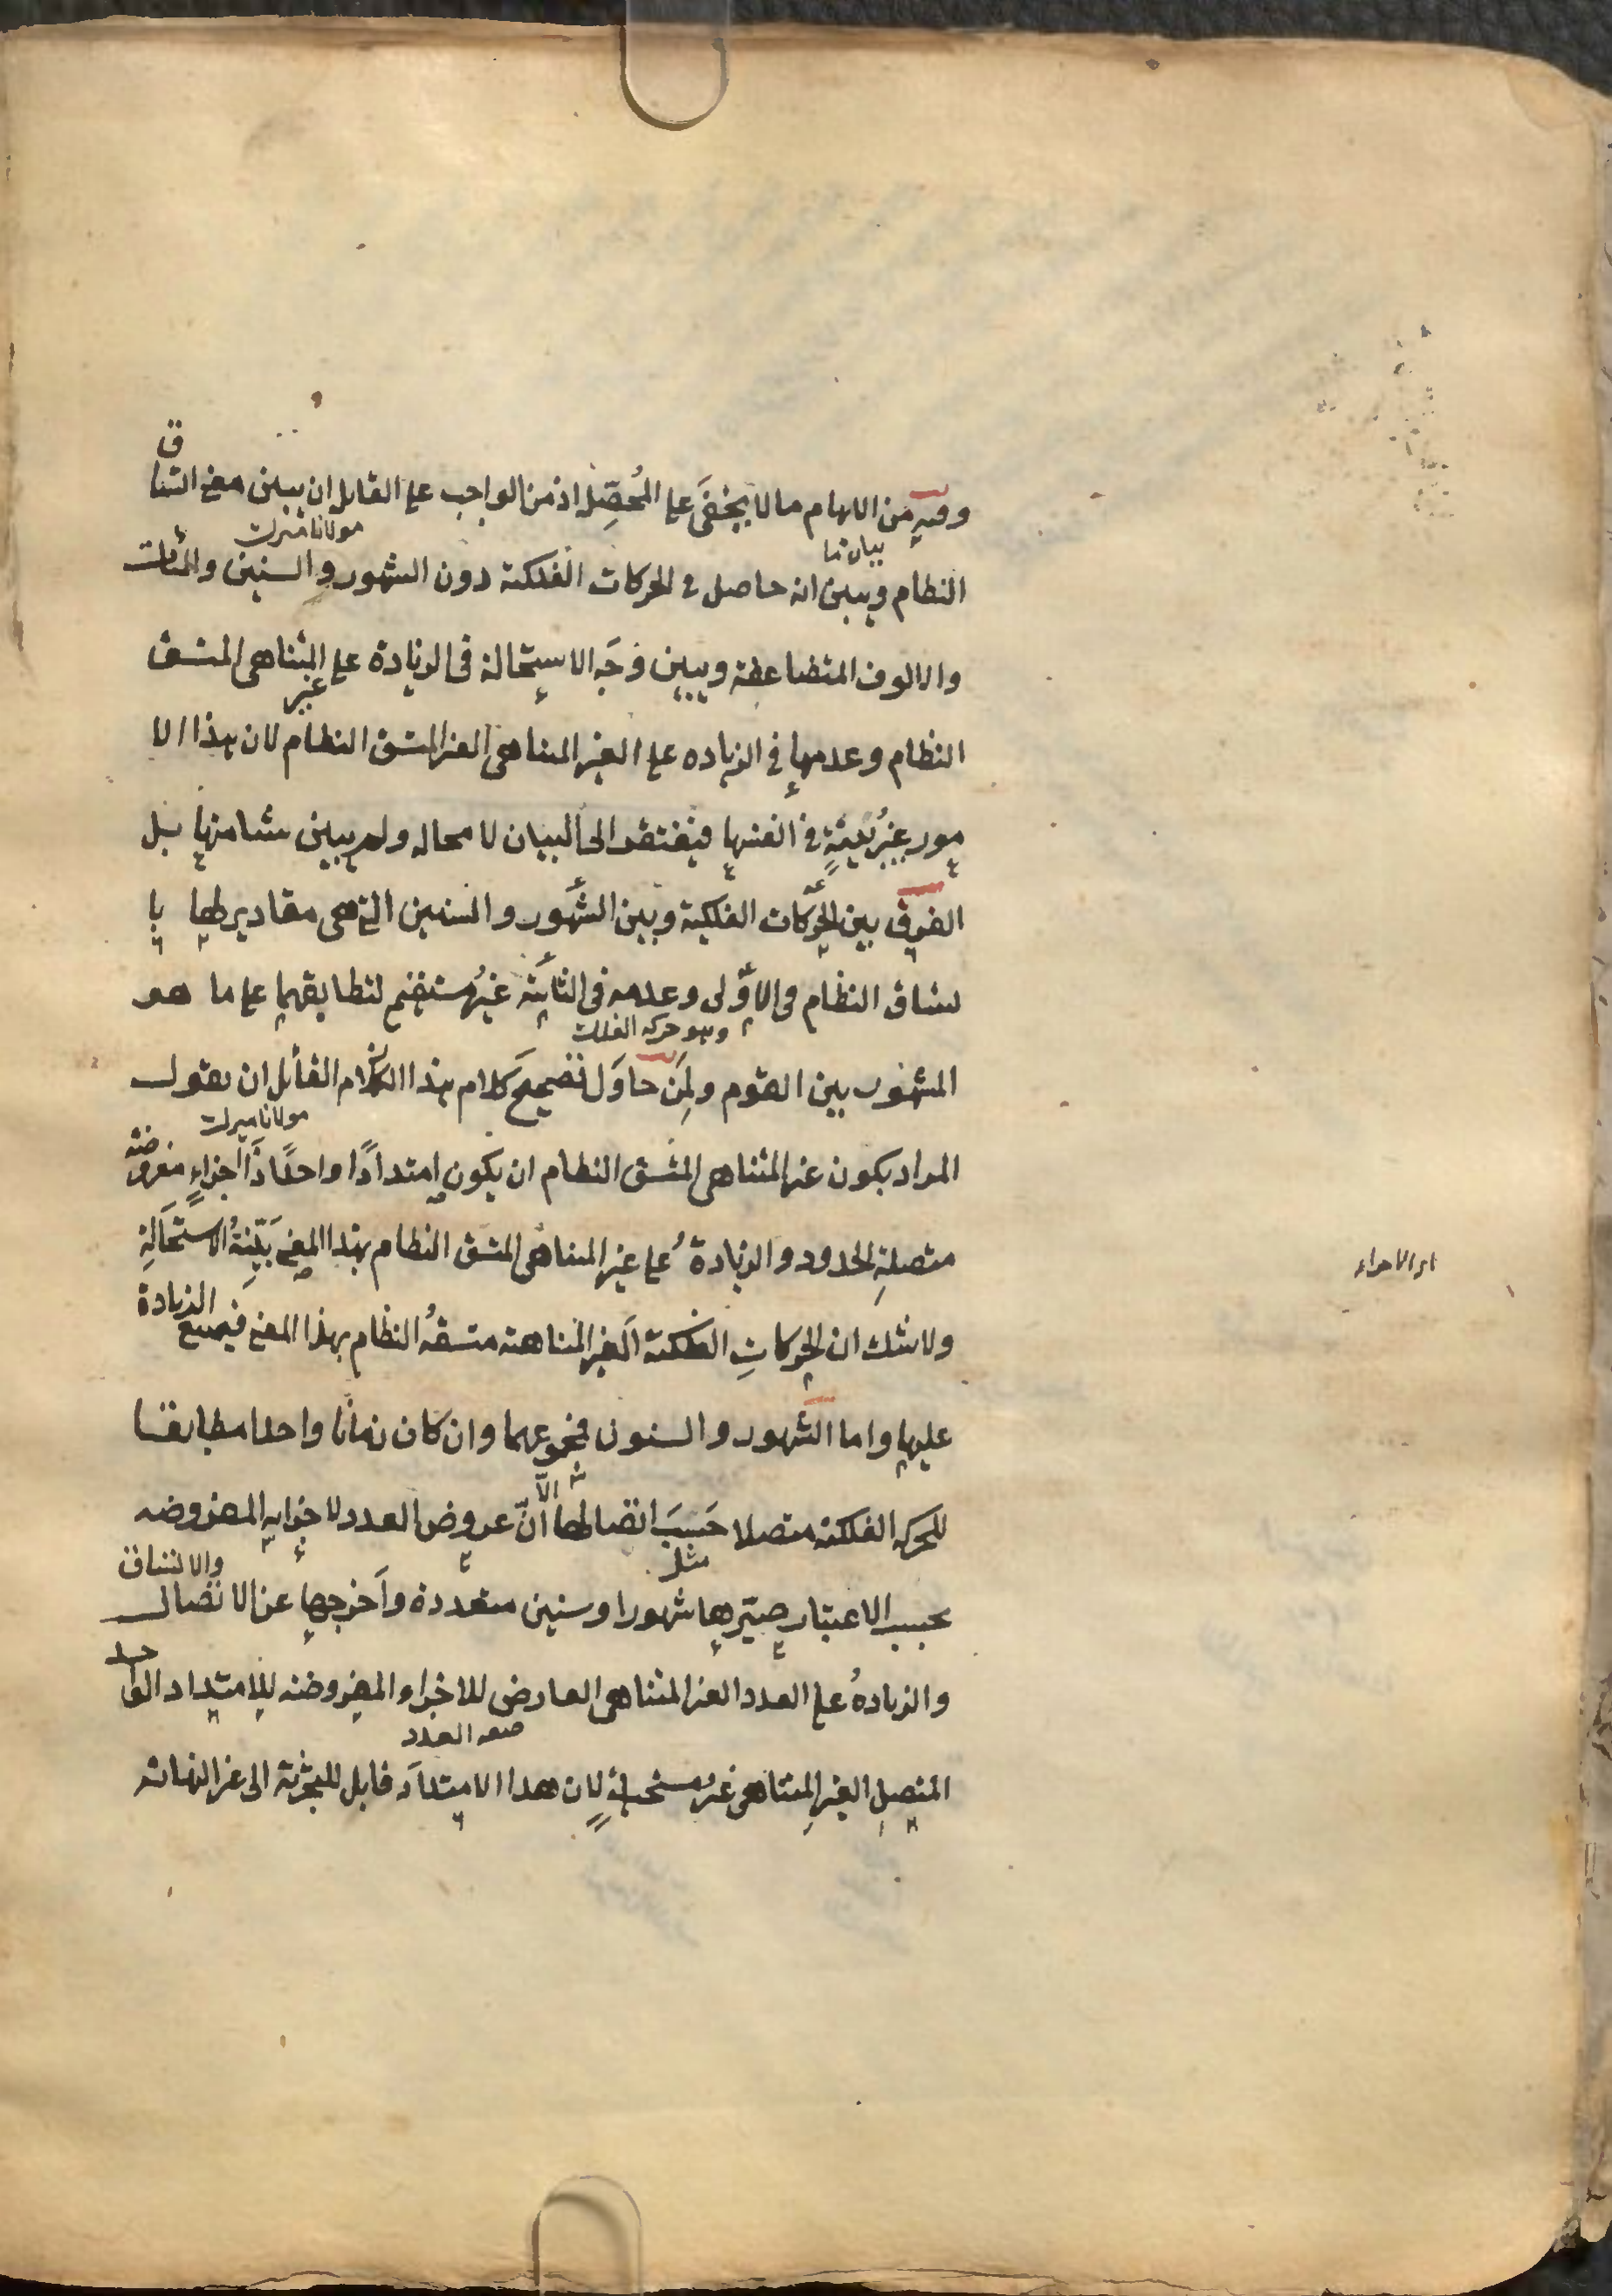 وفيه من الابهام ما لا يخفَى على المُحصِّل اذ من الواجب على القايل ان يبين معنى اتساق
بيان ما
مولانا ميرك
النظام ويبين انه حاصل في الحركات الفلكية دون الشهور والسنين والمئات
والالوف المتضاعفة ويبين وَجَه الاستحالة فى الزيادة على المتناهى المتسق
غير
النظام وعدمها في الزياده على الغير المتناهى الغير المتسق النظام لان هذا الا
مور غيرُ بَيِّنةٍ في انفسها فيفتقر الى البيان لا محاله ولم يبين شيئا منها بل
الفرق بين الحركات الفلكية وبين الشهور والسنين التي هى مقادير لها با
تساق النظام فى الاوّلى وعدمه فى الثانية غيرُ مستقيم لتطابقهما على ما هو
وهو حركه الفلك
المشهور بين القوم ولمَن حاوَل تصحيحَ كلام هذا القائل ان يقول
مولانا ميرك
المراد بكون غير المتناهى المتسق النظام ان يكون امتدادًا واحدًا ذَا اجزاءٍ مفروضه
متصلةِ الحدود والزيادةُ على غير المتناهى المتسق النظام بهذا المعنى بَيِّنةُ الاستحَالةِ
ولا شك ان الحركاتِ الفلكية الغير المتناهية متسقهُ النظام بهذا المعنى فيمتنع الزيادة
عليها واما الشهور والسنون فمجموعهما وان كان زمانًا واحدا مطابقا
للحركه الفلكية متصلا حَسَبَ اتصالها الّا انّ عروض العدد لاجزايه المفروضه
مثل
بحسب الاعتبار صيّرها شهورا وسنين متعددة وأخرجها عن الاتصال والاتساق
والزيادهُ على العدد الغير المتناهى العارض للاجزاء المفروضه للامتداد الواحد
صفه العدد
المتصلِ الغيرِ المتناهى غيرُ مستحيلةٍ لان هذا الامتدادَ قابل للتجزية الى غير النهاية